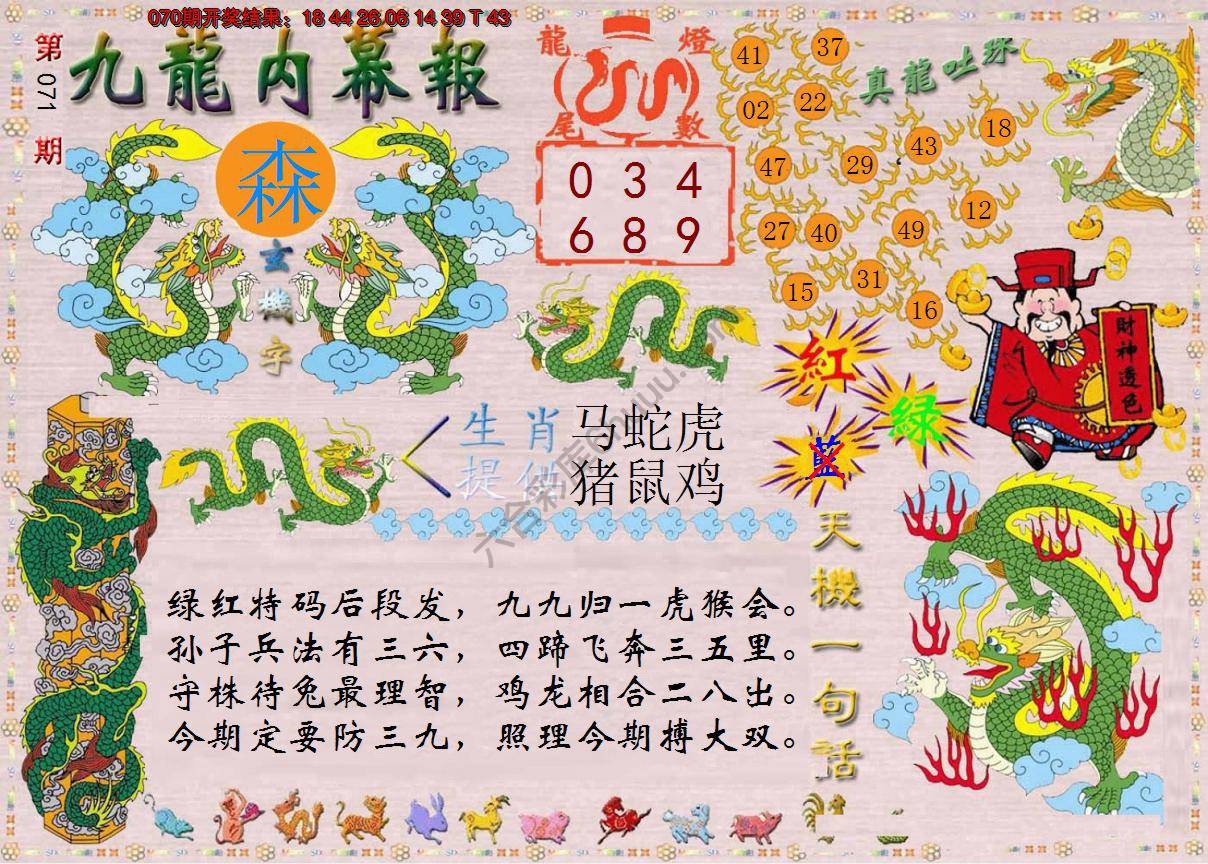 070期开奖结果：18 44 26.06 14 39 T 43
第071期
九龍内幕報
森
玄機字
龍燈
尾數
0 3 4
6 8 9
真龍吐珠
41 37
02 22
47 29 43 18
27 40 49 12
15 31 16
財神透色
紅
綠
藍
生肖 马蛇虎
提供 猪鼠鸡
六合彩库
天機一句話
绿红特码后段发，九九归一虎猴会。
孙子兵法有三六，四蹄飞奔三五里。
守株待兔最理智，鸡龙相合二八出。
今期定要防三九，照理今期搏大双。